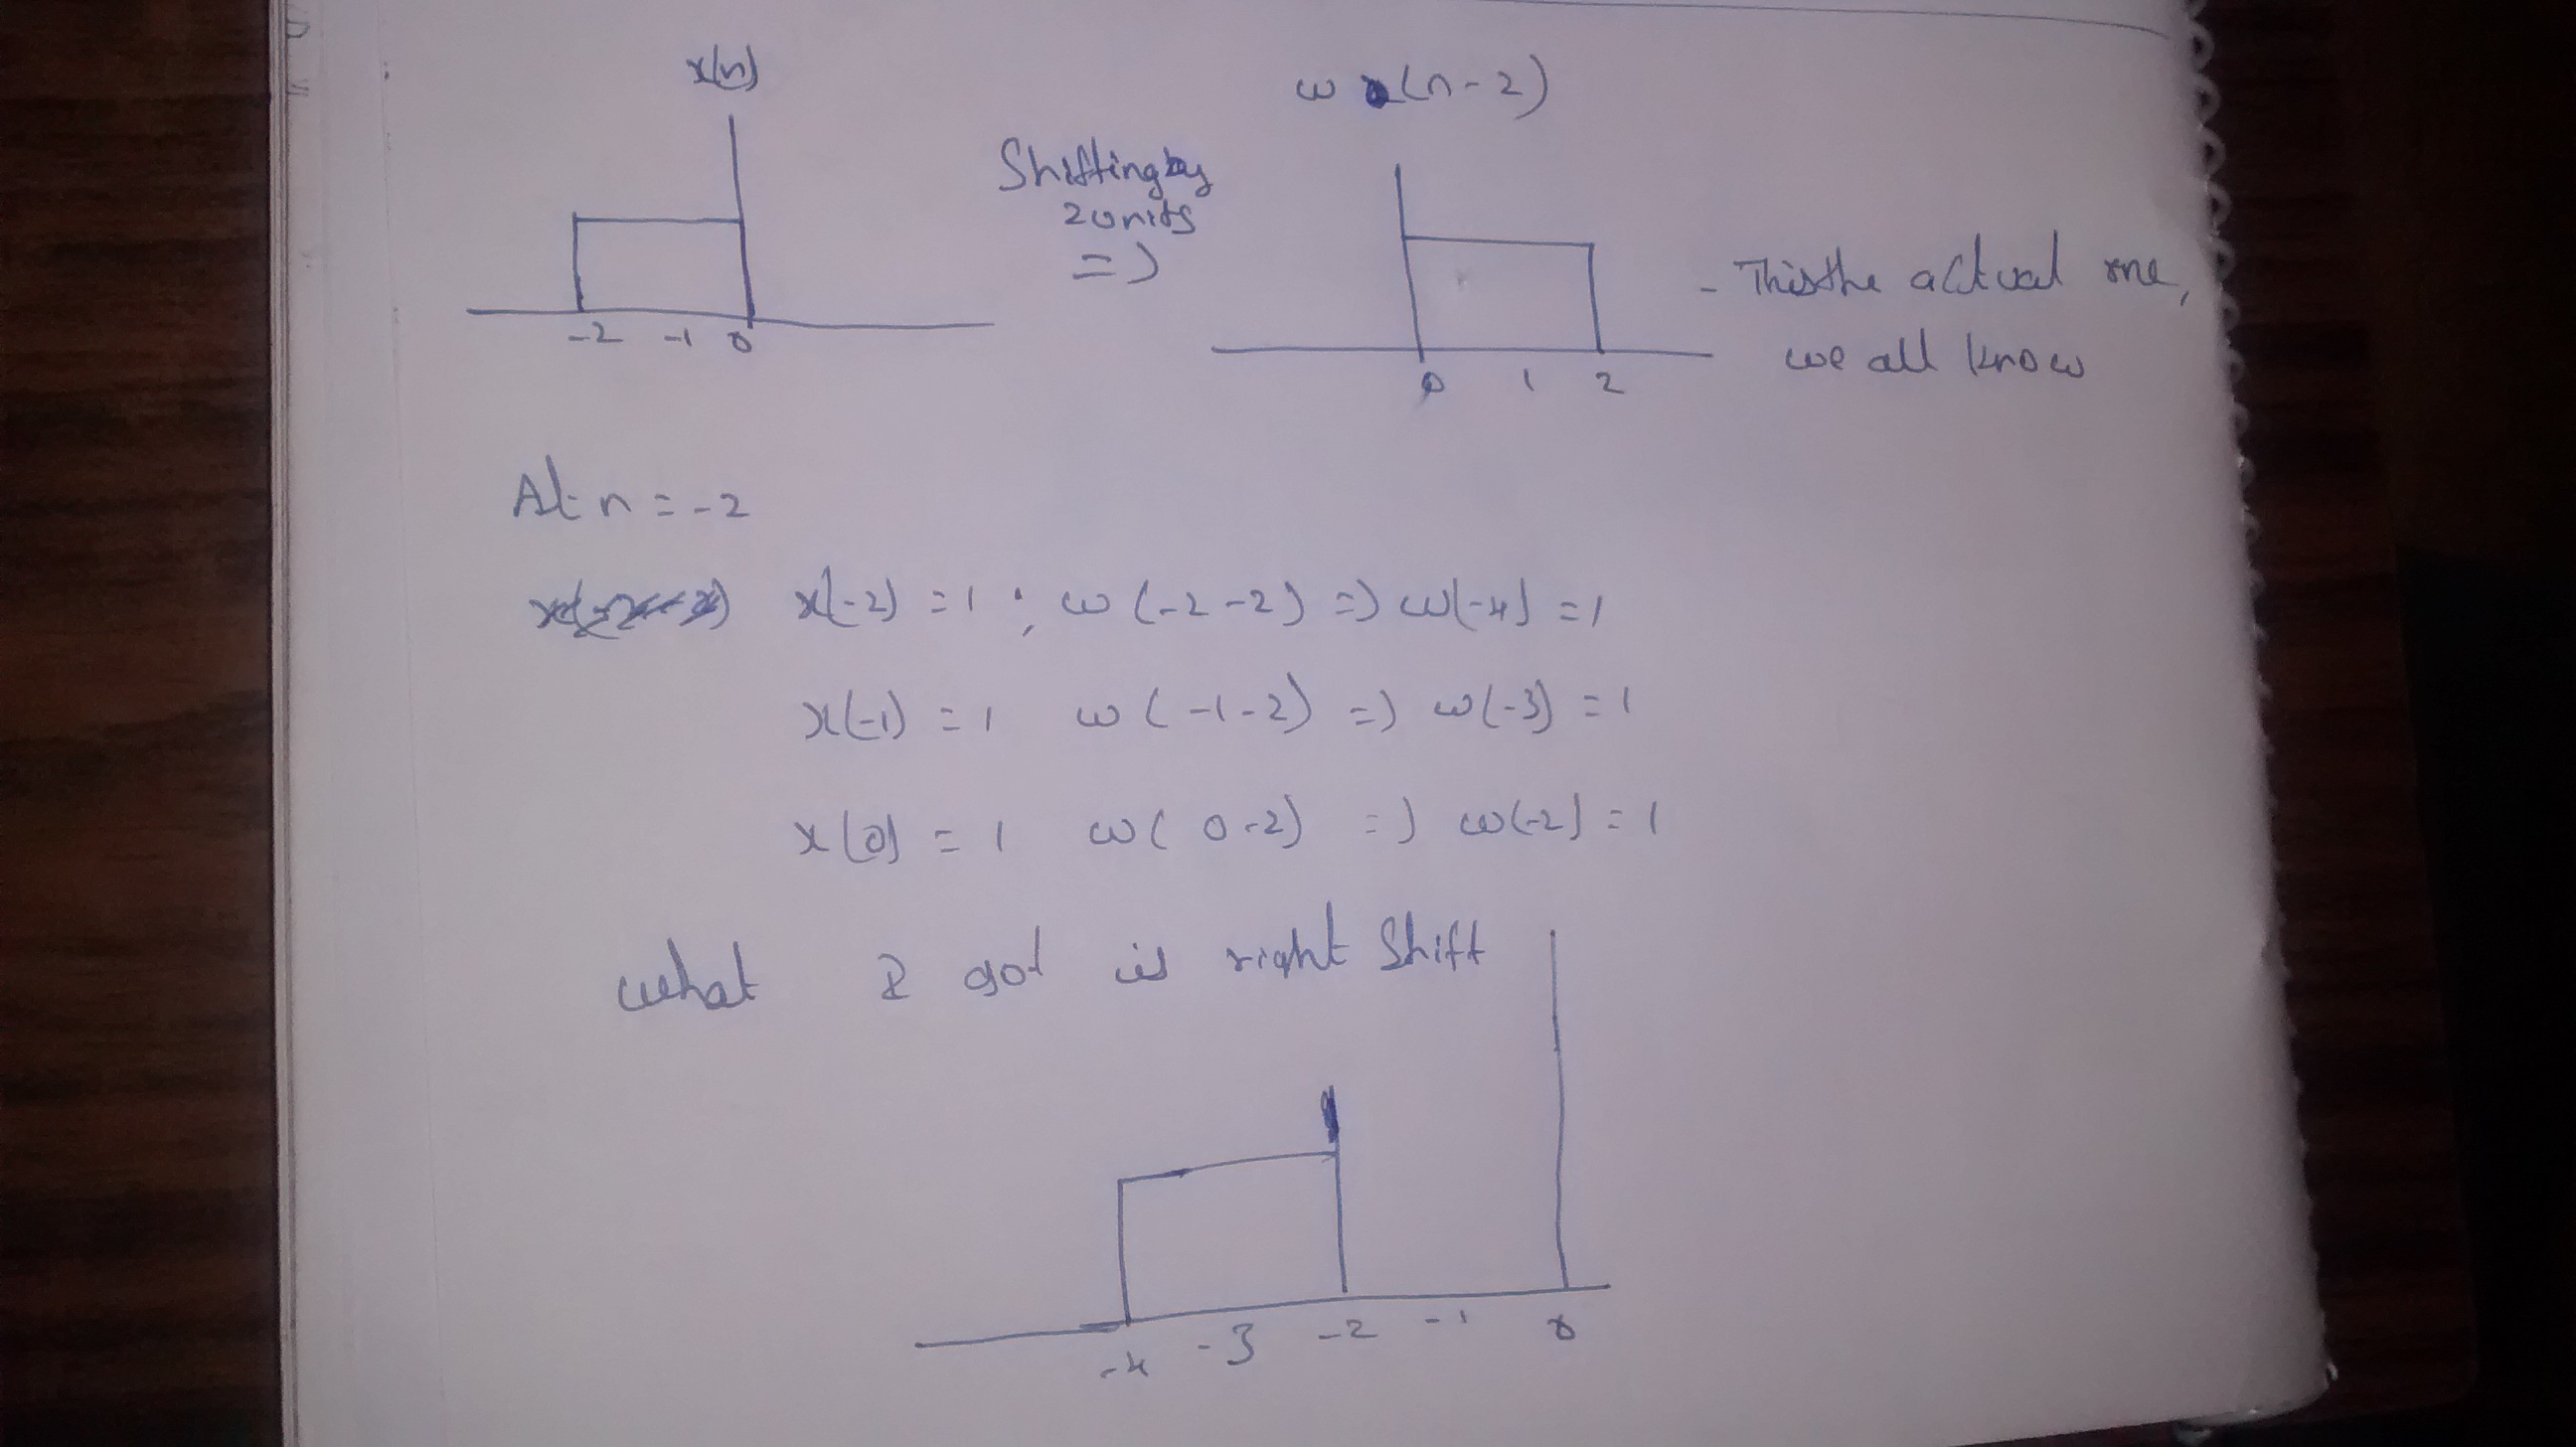 x(n)
w (n-2)
Shifting by
2 units
=)
-2 -1 0
0 1 2
- This the actual one,
we all know
At n = -2
x(-2) = 1 ; w (-2-2) =) w(-4) = 1
x(-1) = 1 w (-1-2) =) w(-3) = 1
x(0) = 1 w( 0-2) =) w(-2) = 1
what I got is right shift
-4 -3 -2 -1 0